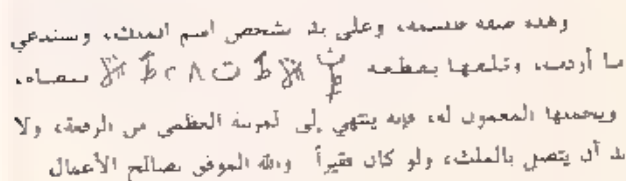 وهذه صفة طلسمه، وعلى يد شخص اسم الملك، وستدعي
ما أردت، وتلعها بقطعة
ويحملها المعمول له، فإنه ينتهي إلى لمرتبة العظمى من الرفعة، ولا
بد أن يتصل بالملك، ولو كان فقيراً والله الموفق بصالح الأعمال